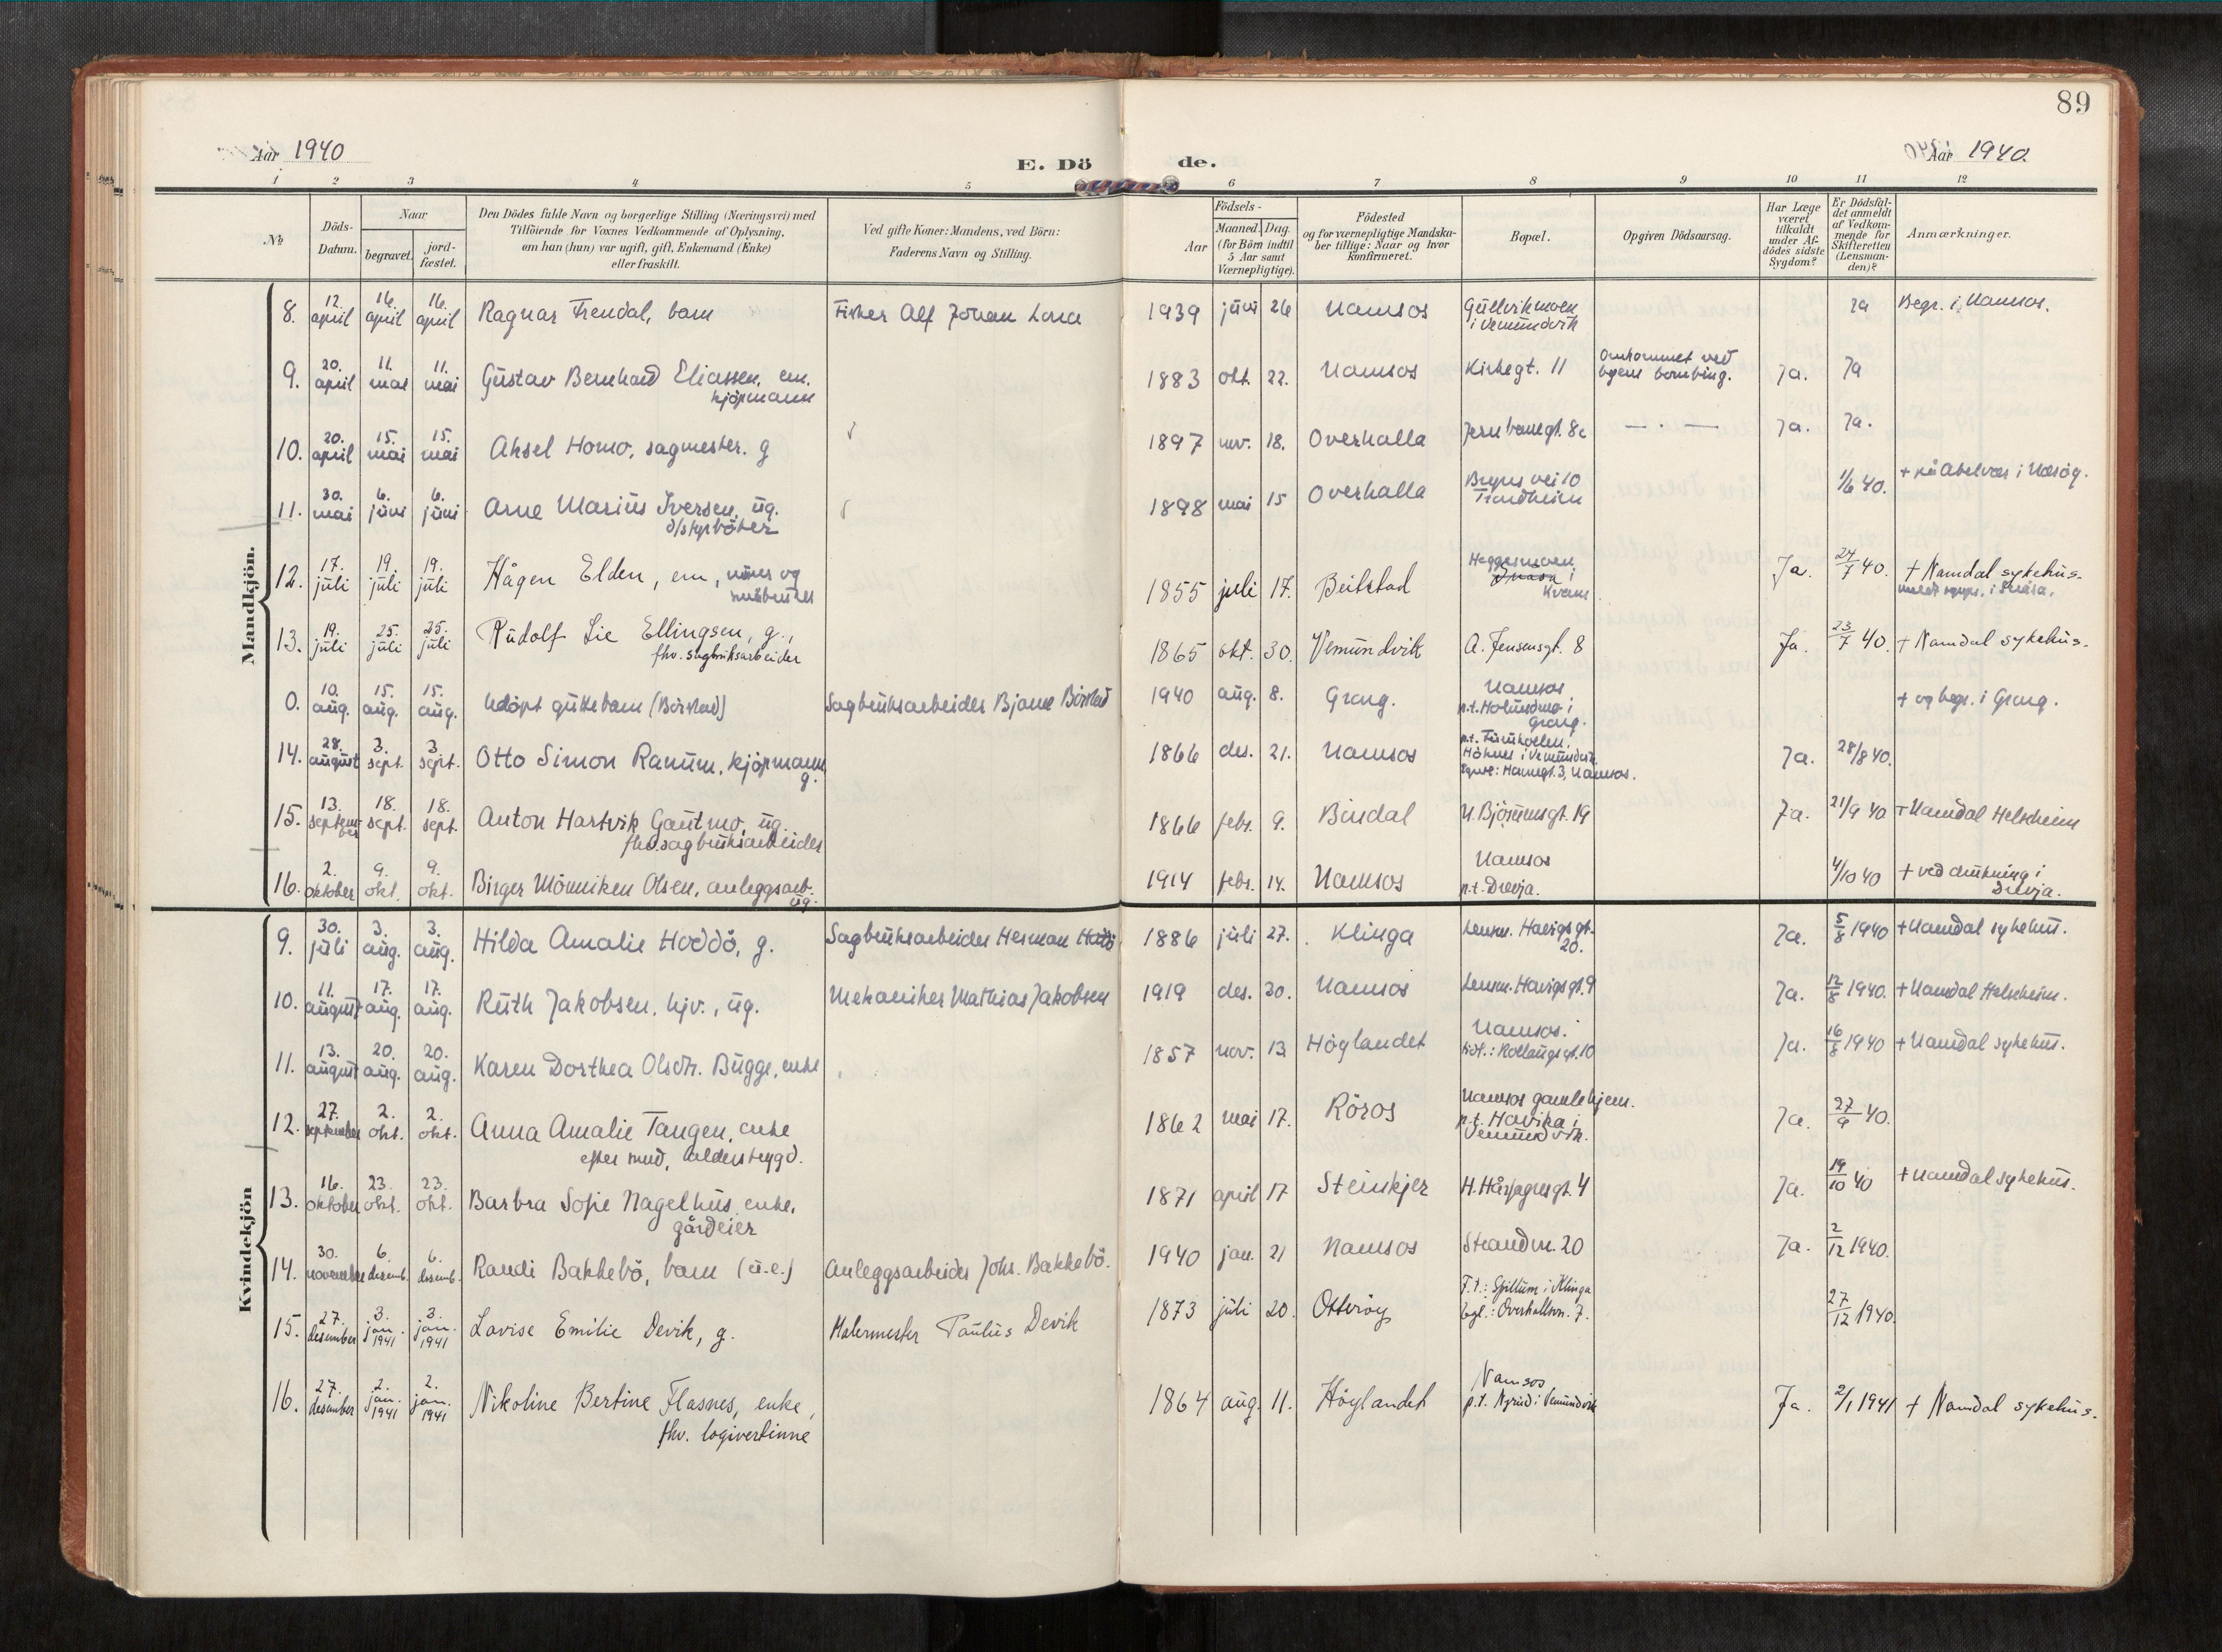 89
Aar 1940
E. Dö de.
Aar 1940.
1 2 3 4 5 6 7 8 9 10 11 12
№
Döds-
Datum.
Naar
begravet.
jord-
fæstet.
Den Dödes fulde Navn og borgerlige Stilling (Næringsvei) med
Tilföiende for Voxnes Vedkommende af Oplysning,
om han (hun) var ugift, gift, Enkemand (Enke)
eller fraskilt.
Ved gifte Koner: Mandens, ved Börn:
Faderens Navn og Stilling.
Födsels-
Aar
Maaned. Dag.
(for Börn indtil
5 Aar samt
Værnepligtige).
Födested
og for værnepligtige Mandska-
ber tillige: Naar og hvor
konfirmeret.
Bopæl.
Opgiven Dödsaarsag.
Har Læge
været
tilkaldt
under Af-
dödes sidste
Sygdom?
Er Dödsfal-
det anmeldt
af Vedkom-
mende for
Skifteretten
(Lensman-
den)?
Anmærkninger.
Mandkjön.
8. 12. april 16. april 16. april Ragnar Frendal, barn Fisker Alf Johan 1939 juni 26 Namsos Gullvikmoen
i Vemundvik
Ja Begr. i Namsos.
9. 20. april 11. mai 11. mai Gustav Bernhard Eliassen, em.
kjöpmann
1883 okt. 22. Namsos Kirkegt. 11 Omkommet ved
byens bombing. Ja. Ja
10. 20. april 15. mai 15. mai Aksel Homo, sagmester. g 1897 nov. 18. Overhalla Jernbanegt. 8c — · — Ja. Ja.
11. 30. mai 6. juni 6. juni Arne Marius Iversen, ug.
d/skipböter
1898 mai 15 Overhalla vei 10
Trondheim
1/6 40. + på Abelvær i Nærøy.
12. 17. juli 19. juli 19. juli Hågen Elden, em, og
1855 juli 17. Beitstad Heggesmoen,
Snåsa i
Kvam
Ja. 24/7 40. + Namdal sykehus.
i Snåsa.
13. 19. juli 25. juli 25. juli Rudolf Lie Ellingsen, g.,
fhv. sagbruksarbeider
1865 okt. 30. Vemundvik A. Jensensgt. 8 Ja. 23/7 40. + Namdal sykehus.
0. 10. aug. 15. aug. 15. aug. Udöpt guttebarn (Börstad) Sagbruksarbeider Bjarne Börstad 1940 aug. 8. Grong. Namsos,
p.t. i
Grong.
+ og begr. i Grong.
14. 28. august 3. sept. 3. sept. Otto Simon Ranum, kjöpmann
g.
1866 des. 21. Namsos p.t. Furuholen,
Höknes i Vemundvik.
Havnegt. 3, Namsos.
Ja. 28/8 40.
15. 13. september 18. sept. 18. sept. Anton Hartvik Gautmo, ug.
fhv. sagbruksarbeider
1866 febr. 9. Bindal N. Björumsgt. 19 Ja. 21/9 40 + Namdal Helseheim
16. 2. oktober 9. okt. 9. okt. Birger Mönniken Olsen, anleggsarb.
ug.
1914 febr. 14. Namsos Namsos
p.t. Drevja.
4/10 40 + ved drukning i
Drevja.
Kvindekjön
9. 30. juli 3. aug. 3. aug. Hilda Amalie Hoddö, g. Sagbruksarbeider Herman Hoddö 1886 juli 27. Klinga Lensm. Havigs gt.
20.
Ja. 5/8 1940 + Namdal sykehus.
10. 11. august 17. aug. 17. aug. Ruth Jakobsen, hjv., ug. Mekaniker Mathias Jakobsen 1919 des. 30. Namsos Lensm. Havigs gt. 9 Ja. 12/8 1940. + Namdal Helseheim.
11. 13. august 20. aug. 20. aug. Karen Dorthea Olsdtr. Bugge, enke 1857 nov. 13. Höylandet Namsos.
Rollaugsgt. 10
Ja. 16/8 1940 + Namdal sykehus.
12. 27. september 2. okt. 2. okt. Anna Amalie Tangen, enke
efter smed, alderstrygd.
1862 mai 17. Röros Namsos gamlehjem.
p.t. Havika i
Vemundvik.
Ja. 27/9 40.
13. 16. oktober 23. okt. 23. okt. Barbra Sofie Nagelhus, enke,
gårdeier
1871 april 17 Steinkjer H. Hårfagresgt. 4 Ja. 19/10 40 + Namdal sykehus.
14. 30. november 6. desemb. 6. desemb. Randi Bakkebö, barn (u.e.) Anleggsarbeider Johs. Bakkebö. 1940 jan. 21 Namsos Strandvn. 20 Ja. 2/12 1940.
15. 27. desember 3. jan. 1941 3. jan. 1941 Lovise Emilie Devik, g. Malermester Paulus Devik 1873 juli 20. Otteröy F.t.: Spillum i Klinga
Overhallsvn. 7.
27/12 1940.
16. 27. desember 2. jan. 1941 2. jan. 1941 Nikoline Bertine Flasnes, enke,
fhv. logivertinne
1864 aug. 11. Höylandet Namsos
p.t. i Vemundvik
Ja. 2/1 1941 + Namdal sykehus.